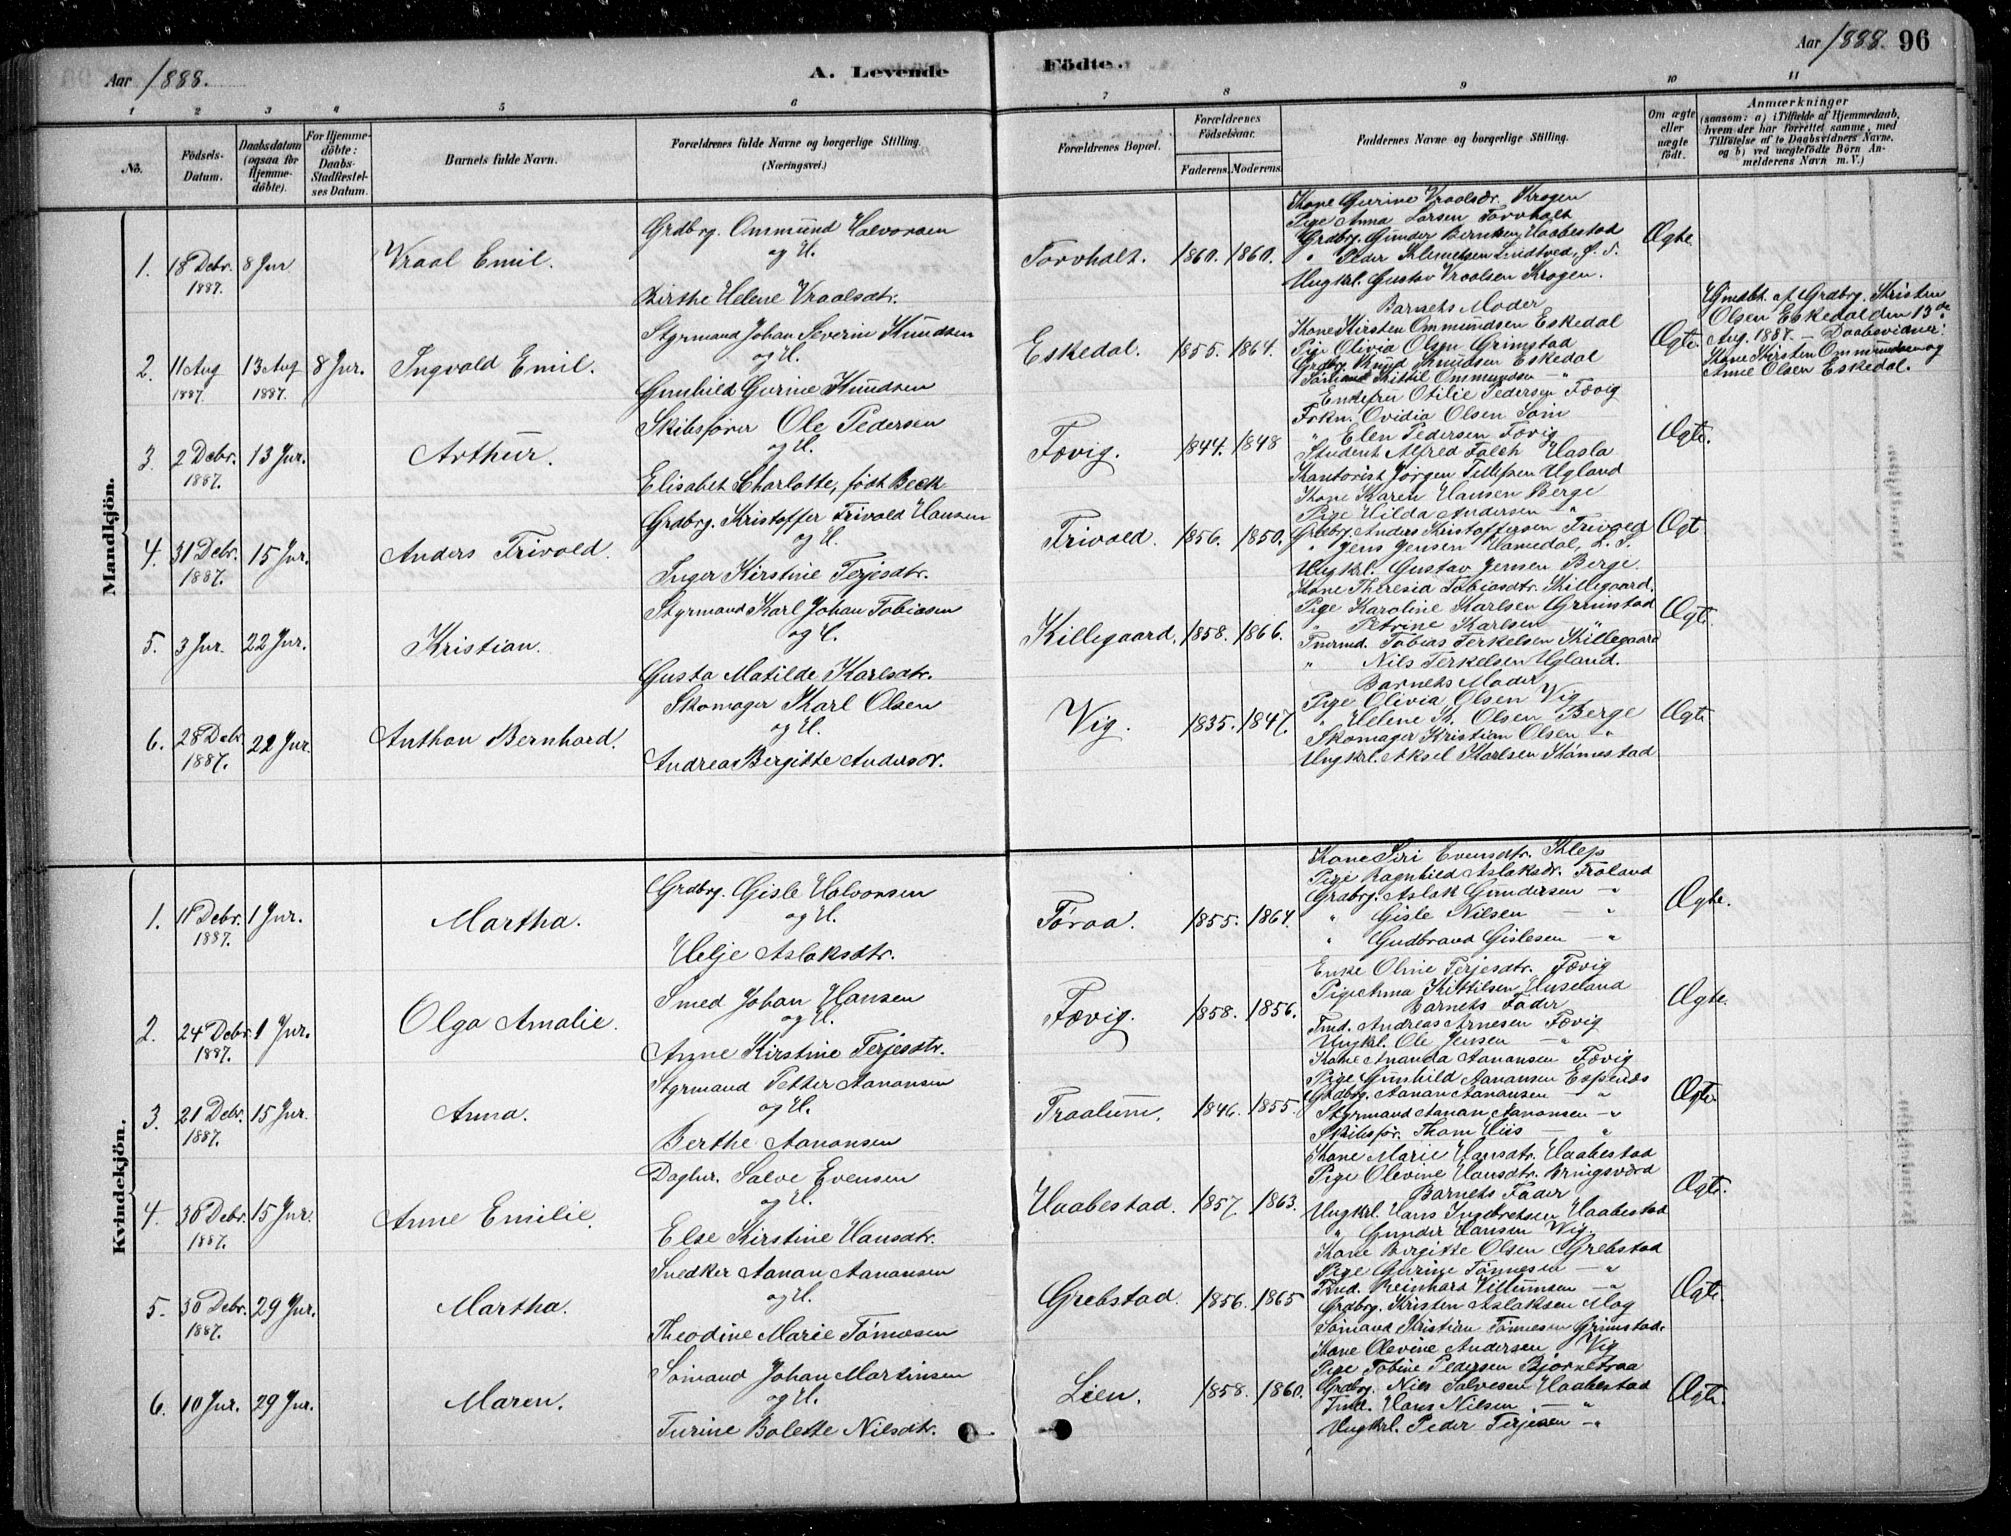 Aar 1888.
A. Levende
Födte.
Aar 1888. 96
1 2 3 4 5 6 7 8 9 10 11
No.
Födsels-Datum.
Daabsdatum (ogsaa for Hjemme-döbte).
For Hjemme-döbte: Daabs-Stadfestel-ses Datum.
Barnets fulde Navn.
Forældrenes fulde Navne og borgerlige Stilling. (Næringsvei.)
Forældrenes Bopæl.
Forældrenes Födselsaar.
Faderens. Moderens.
Faddernes Navne og borgerlige Stilling.
Om ægte eller uægte födt.
Anmærkninger
(saasom: a) i Tilfælde af Hjemmedaab, hvem der har forrettet samme, med Tilföielse af to Daabsvidners Navne, og b) ved uægtefödte Börn An-melderens Navn m. V.)
Mandkjön.
1. 18 Debr. 1887. 8 Jnr Vraal Emil.
Grdbrg. Ommund Halvorsen
og H.
Birthe Helene Vraalsdtr.
Torvholt. 1860. 1860.
Kone Gurine Vraalsdr. Krogen
Pige Anna Larsen Torvholt
Grdbrg. Gunder Berntsen, Haabestad
" Peder Klemetsen Lindtved, Ø. S.
Ungkrl. Gustav Vraalsen Krogen.
Ægte
2. 11 Aug 1887. 13 Aug 1887. 8 Jnr. Ingvald Emil.
Styrmand Johan Severin Knudsen
og H.
Gunhild Gurine Knudsen
Eskedal. 1855. 1864.
Barnets Moder
Kone Kirsten Ommundsen Eskedal
Pige Olivia Olsen Grimstad
Grdbrg. Knud Knudsen Eskedal
Sömand Kittil Ommundsen — "
Ægte.
Hjmdbt. af Grdbrg. Kristen
Olsen Eskedal den 13de
Aug. 1887. — Daabsvidner:
Kone Kirsten Ommundsen og
Anne Olsen Eskedal.
3. 2 Debr. 1887. 13 Jnr. Arthur.
Skibsfører Ole Pedersen
og H.
Elisabet Charlotte, født Beck
Fævig. 1844. 1848
Enkefru Otilie Pedersen Fævig
Frkn. Ovidia Olsen Søm
" Elen Pedersen Fævig
Student Alfred Falch Hasla
Kantorist Jørgen Tellefsen Ugland
Ægte.
4. 31 Debr. 1887. 15 Jnr. Anders Trivold.
Grdbrg. Kristoffer Trivold Hansen
og H.
Inger Kirstine Terjesdtr.
Trivold. 1856. 1850.
Kone Karen Hansen Berge
Pige Hilda Andersen — "
Grdbrg. Anders Kristoffersen Trivold
" Jens Jensen Hamedal, L. S.
Ungkrl. Gustav Jensen Berge.
Ægt
5. 3 Jnr. 22 Jnr. Kristian.
Styrmand Karl Johan Tobiasen
og H.
Gusta Matilde Karlsdtr.
Killegaard. 1858. 1866.
Kone Theresia Tobiasdtr. Killegaard.
Pige Karoline Karlsen Grimstad
" Petrine Karlsen — "
Tmrmd. Tobias Terkelsen Killegaard
" Nils Terkelsen Ugland.
Ægt.
6. 28 Debr. 1887. 22 Jnr. Anthon Bernhard.
Skomager Karl Olsen
og H.
Andrea Bergitte Andersdr.
Vig. 1835. 1847.
Barnets Moder
Pige Olivia Olsen Vig
" Helene K. Olsen Berge
Skomager Kristian Olsen "
Ungkrl. Aksel Karlsen Stønnestad
Ægte
Kvindekjön.
1. 11 Debr. 1887. 1 Jnr. Martha.
Grdbrg. Gisle Halvorsen
og H.
Hilje Aslaksdtr.
Føraa. 1855. 1864.
Kone Siri Evensdtr. Klep
Pige Ragnhild Aslaksdr. Froland
Grdbrg. Aslak Gundersen — "
" Gisle Nilsen — "
" Gudbrand Gislesen — "
Ægte.
2. 24 Debr. 1887. 1 Jnr. Olga Amalie.
Smed Johan Hansen
og H.
Anne Kirstine Terjesdtr.
Fævig. 1858. 1856.
Enke Oline Terjesdtr. Fævig
Pige Anna Kittilsen Huseland
Barnets Fader
Tmd. Andreas Arnesen Fævig
Ungkl. Ole Jensen — "
Ægte.
3. 21 Debr. 1887. 15 Jnr. Anna.
Styrmand Petter Aanonsen
og H.
Berthe Aanonsen
Traalum. 1846. 1855.
Kone Ananda Aanonsen Fævig
Pige Gunhild Aanonsen Espenes
Grdbrg. Aanan Aanonsen — "
Styrmand Aanan Aanonsen — "
Skibsfør. Thom Hiis — "
Ægte
4. 30 Debr. 1887. 15 Jnr. Anne Emilie.
Dagltr. Salve Evensen
og H.
Else Kirstine Hansdtr.
Haabestad. 1857. 1863.
Kone Marie Hansdtr. Haabestad
Pige Olevine Hansdtr. Bringsværd
Barnets Fader
Ungkrl. Hans Ingebretsen Haabestad
" Gunder Hansen Vig.
Ægte.
5. 30 Debr. 1887. 29 Jnr. Martha.
Snedker Aanan Aanonsen
og H.
Theodine Marie Tønnesen
Grebstad. 1856. 1865
Kone Bergitte Olsen Grebstad
Pige Gurine Tønnesen — "
Tmd. Reinhard Villumsen — "
Grdbrg. Kristen Aslaksen Mog
Sømand Kristian Tønnesen Grimstad.
Ægte
6. 10 Jnr. 29 Jnr. Maren.
Sömand Johan Martinsen
og H.
Turine Bolette Nilsdtr.
Lien. 1858. 1860.
Kone Olevine Andersen Vig
Pige Tobine Pedersen Bjørnetraa
Grdbrg. Niels Salvesen Haabestad
Tmd. Hans Nilsen — "
Ungkrl. Peder Terjesen — "
Ægte.